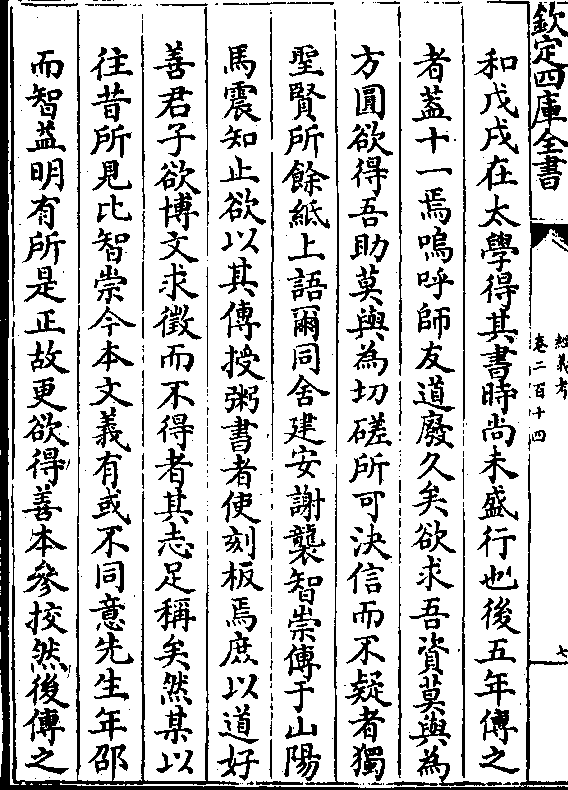 欽定四庫全書
經義考
卷二百十四
七
和戊戌在太學得其書時尚未盛行也後五年傳之
者葢十一焉嗚呼師友道廢久矣欲求吾資莫與為
方圓欲得吾助莫與為切磋所可決信而不疑者獨
聖賢所餘紙上語爾同舍建安謝襲智崇傳于山陽
馬震知止欲以其傳授粥書者使刻板焉庶以道好
善君子欲博文求徵而不得者其志足稱矣然某以
往昔所見比智崇今本文義有或不同意先生年卲
而智益明有所是正故更欲得善本參挍然後傳之